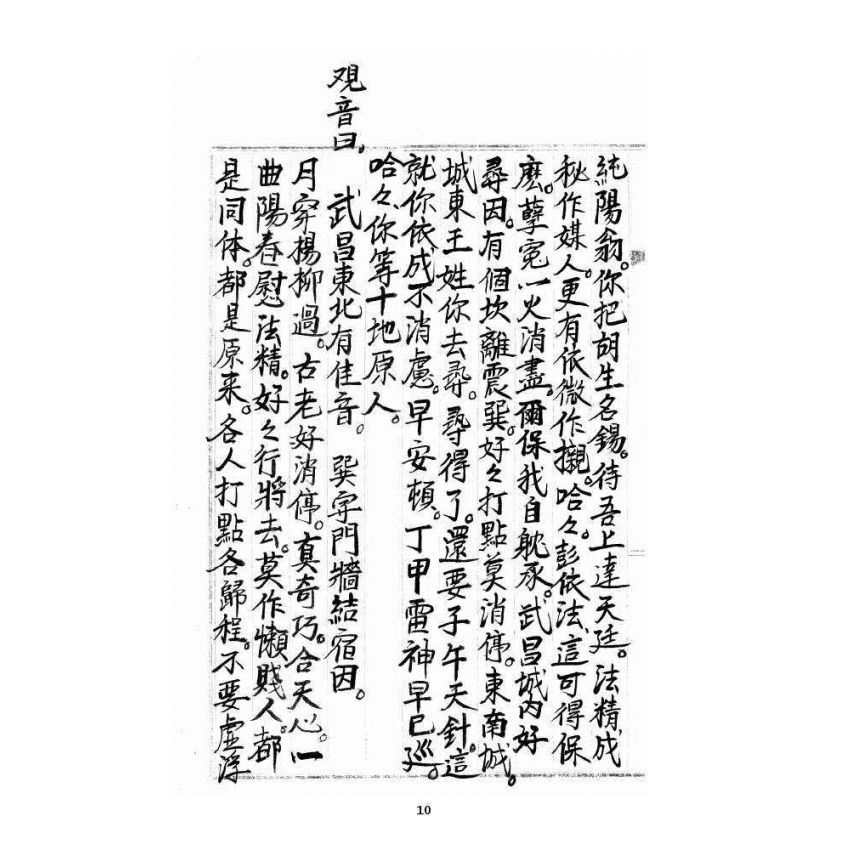 純陽翁。你把胡生名錫。待吾上達天廷。法精成
秘作媒人。更有依微作撮。哈々。彭依法這可得保
麽。孽冤一火消盡。爾保我自耽承。武昌城內好
尋因。有個坎離震巽。好々打點莫消停。東南城。
城東王姓你去尋。尋得了。還要子午天針。這
就你依成不消慮。早安頓。丁甲雷神早已巡。
哈々你等十地原人。
观音曰。 武昌東北有佳音。 巽字門牆結宿因。
月穿楊柳過。古老好消停。真奇巧。合天心。一
曲陽春慰法精。好々行將去。莫作懶賤人。都
是同体。都是原来。各人打點各歸程。不要虛浮
10